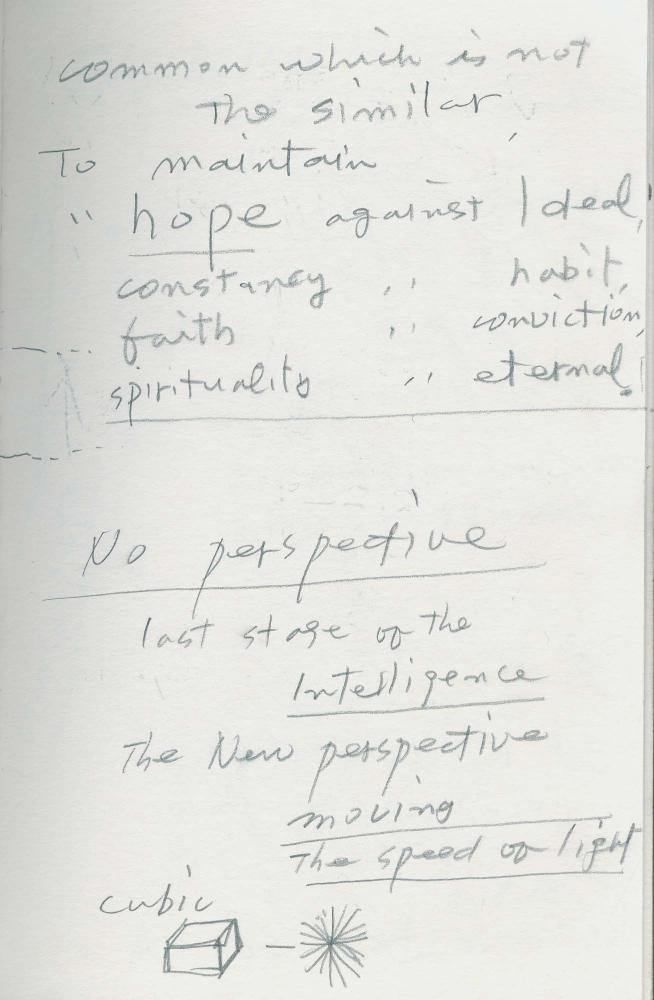 common which is not
the similar,
To maintain
" hope against Ideal,
constancy " habit,
faith " conviction,
spirituality " eternal.
No perspective
last stage of the
Intelligence
The New perspective
moving
The speed of light
cubic